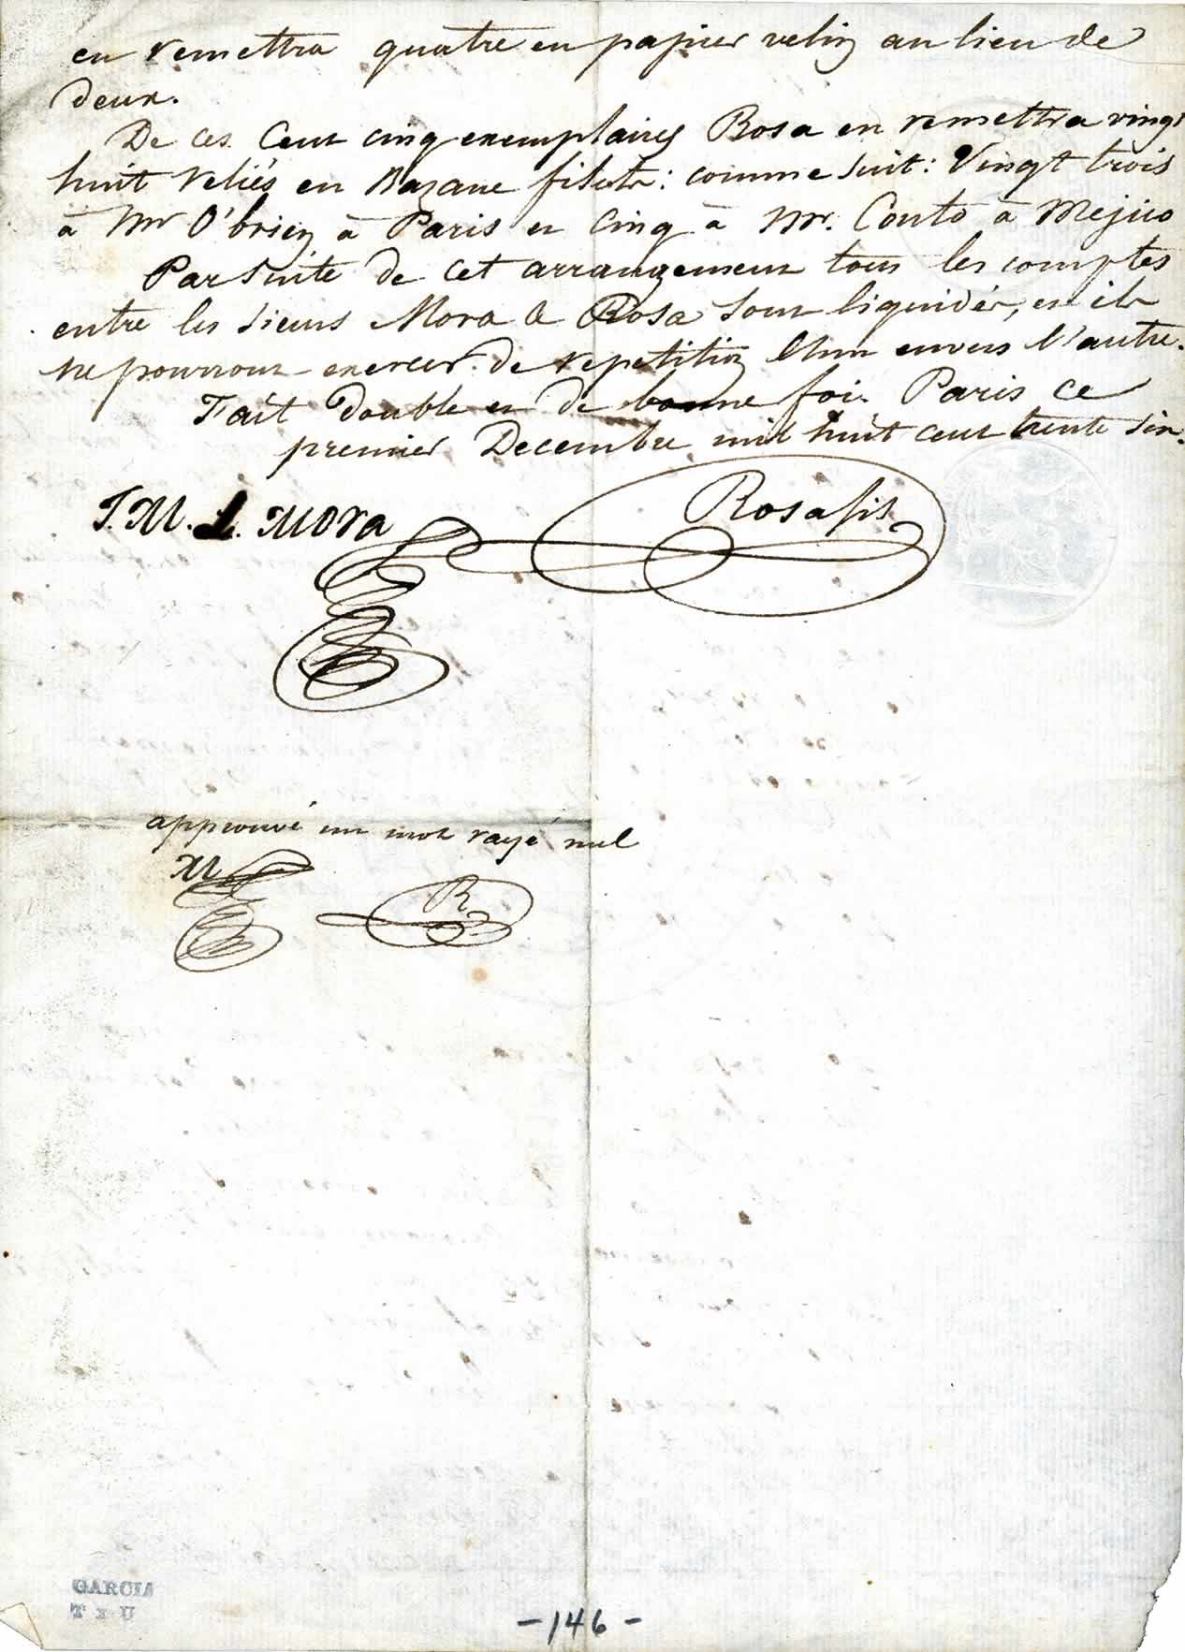 en remettra quatre en papier velin au lieu de
deux.
De ces Cent cinq exemplaires Rosa en remettra vingt
huit reliés en Bazane filets: comme suit: Vingt trois
à Mr O'brien à Paris et Cinq à Mr. Couto à Mejico
Par suite de cet arrangement tous les comptes
entre les sieurs Mora & Rosa sont liquidés, et ils
ne pourront exercer de repetition l'un envers l'autre.
Fait double et de bonne foi. Paris ce
premier Decembre mil huit cent trente six.
J. M. L. Mora
Rosa fils
approuvé un mot rayé nul
M
R
GARCIA
-146-